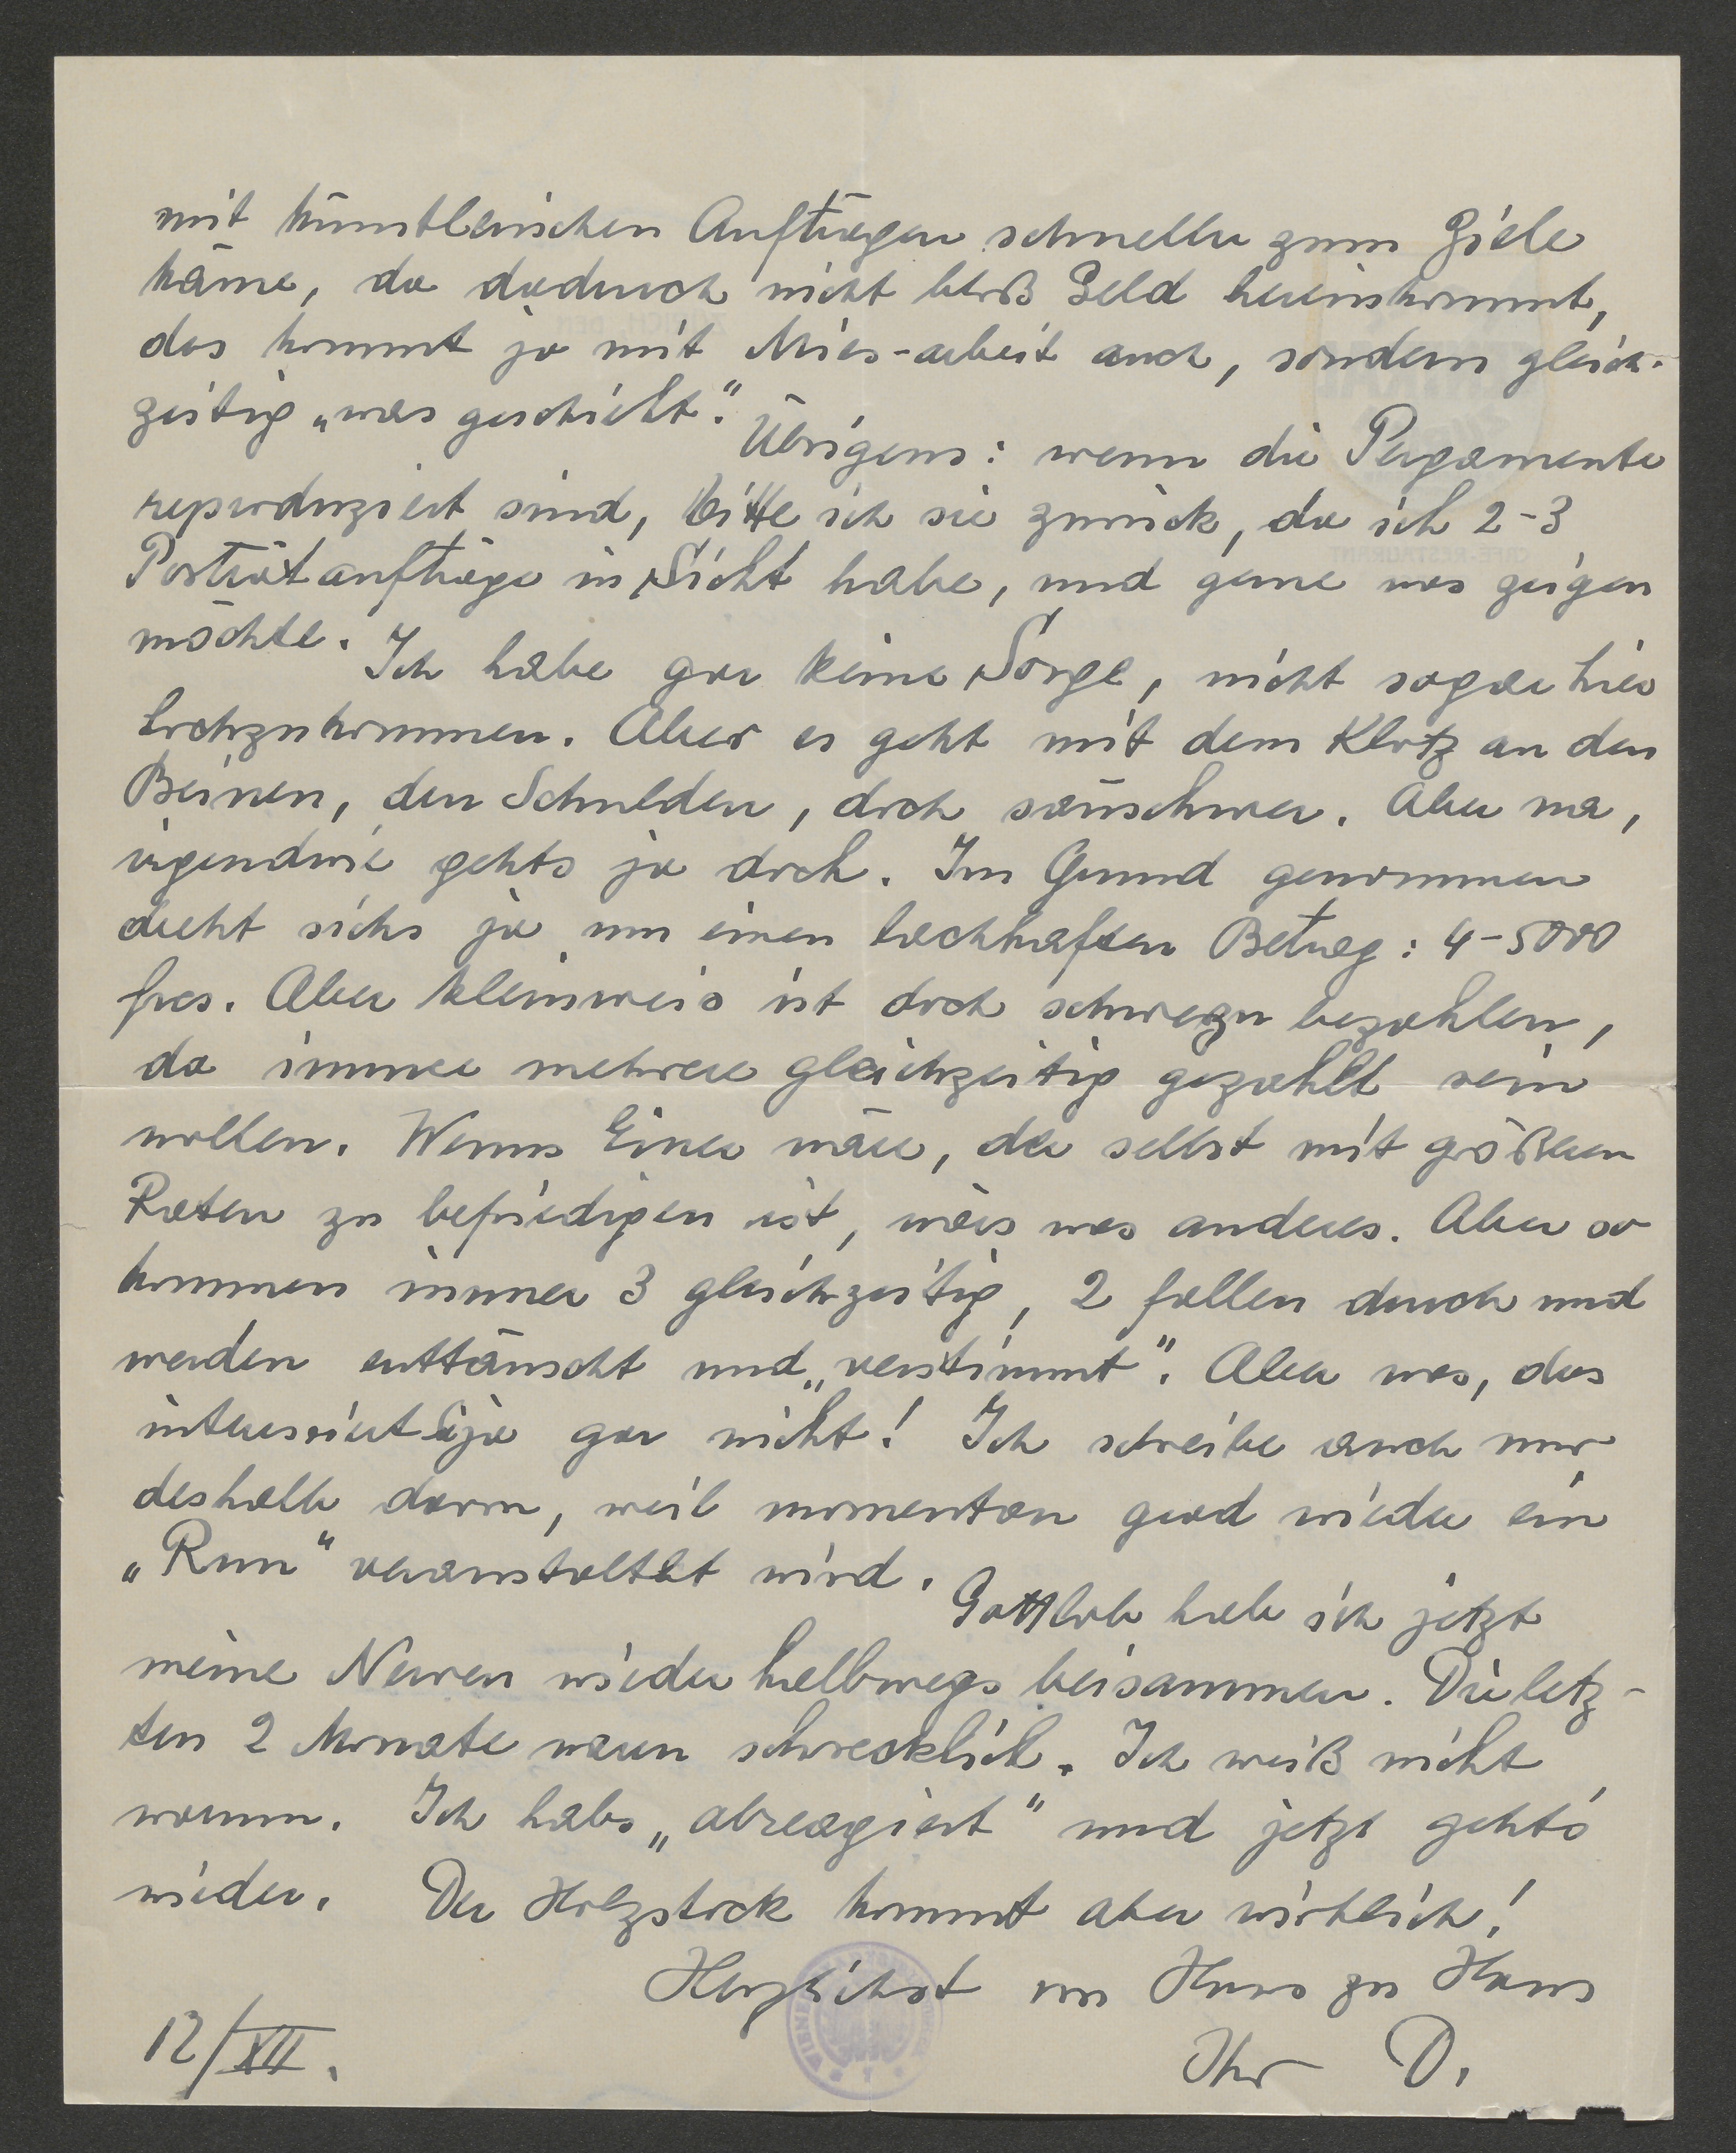 mit künstlerischen Aufträgen schneller zum Ziele
käme, da dadurch nicht bloß Geld hereinkommt,
das kommt ja mit Mies-arbeit auch, sondern gleich-
zeitig „was geschieht“.
Übrigens: wenn die Pergamente
reproduziert sind, bitte ich sie zurück, da ich 2-3
Porträtaufträge in Sicht habe, und gerne was zeigen
möchte.
Ich habe gar keine Sorge, nicht sogar hier
hochzukommen. Aber es geht mit dem Klotz an den
Beinen, den Schulden, doch sauschwer. Aber na,
irgendwie gehts ja doch. Im Grund genommen
dreht sichs ja um einen lachhaften Betrag: 4-5000
frcs. Aber kleinweis ist doch schwer zu bezahlen,
da immer mehrere gleichzeitig gezahlt sein
wollen. Wenns Einer wäre, der selbst mit größeren
Raten zu befriedigen ist, wärs was anderes. Aber so
kommen immer 3 gleichzeitig, 2 fallen durch und
werden enttäuscht und „verstimmt“. Aber was, das
interessiert Sie ja gar nicht! Ich schreibe auch nur
deshalb darum, weil momentan grad wieder ein
„Run“ veranstaltet wird.
Gottlob hab ich jetzt
meine Nerven wieder halbwegs beisammen. Die letz-
ten 2 Monate waren schrecklich. Ich weiß nicht
warum. Ich habs „abreagiert“ und jetzt gehts
wieder. Der Holzstock kommt aber wirklich!
Herzlichst von Haus zu Haus
Ihr D.
12/XII.